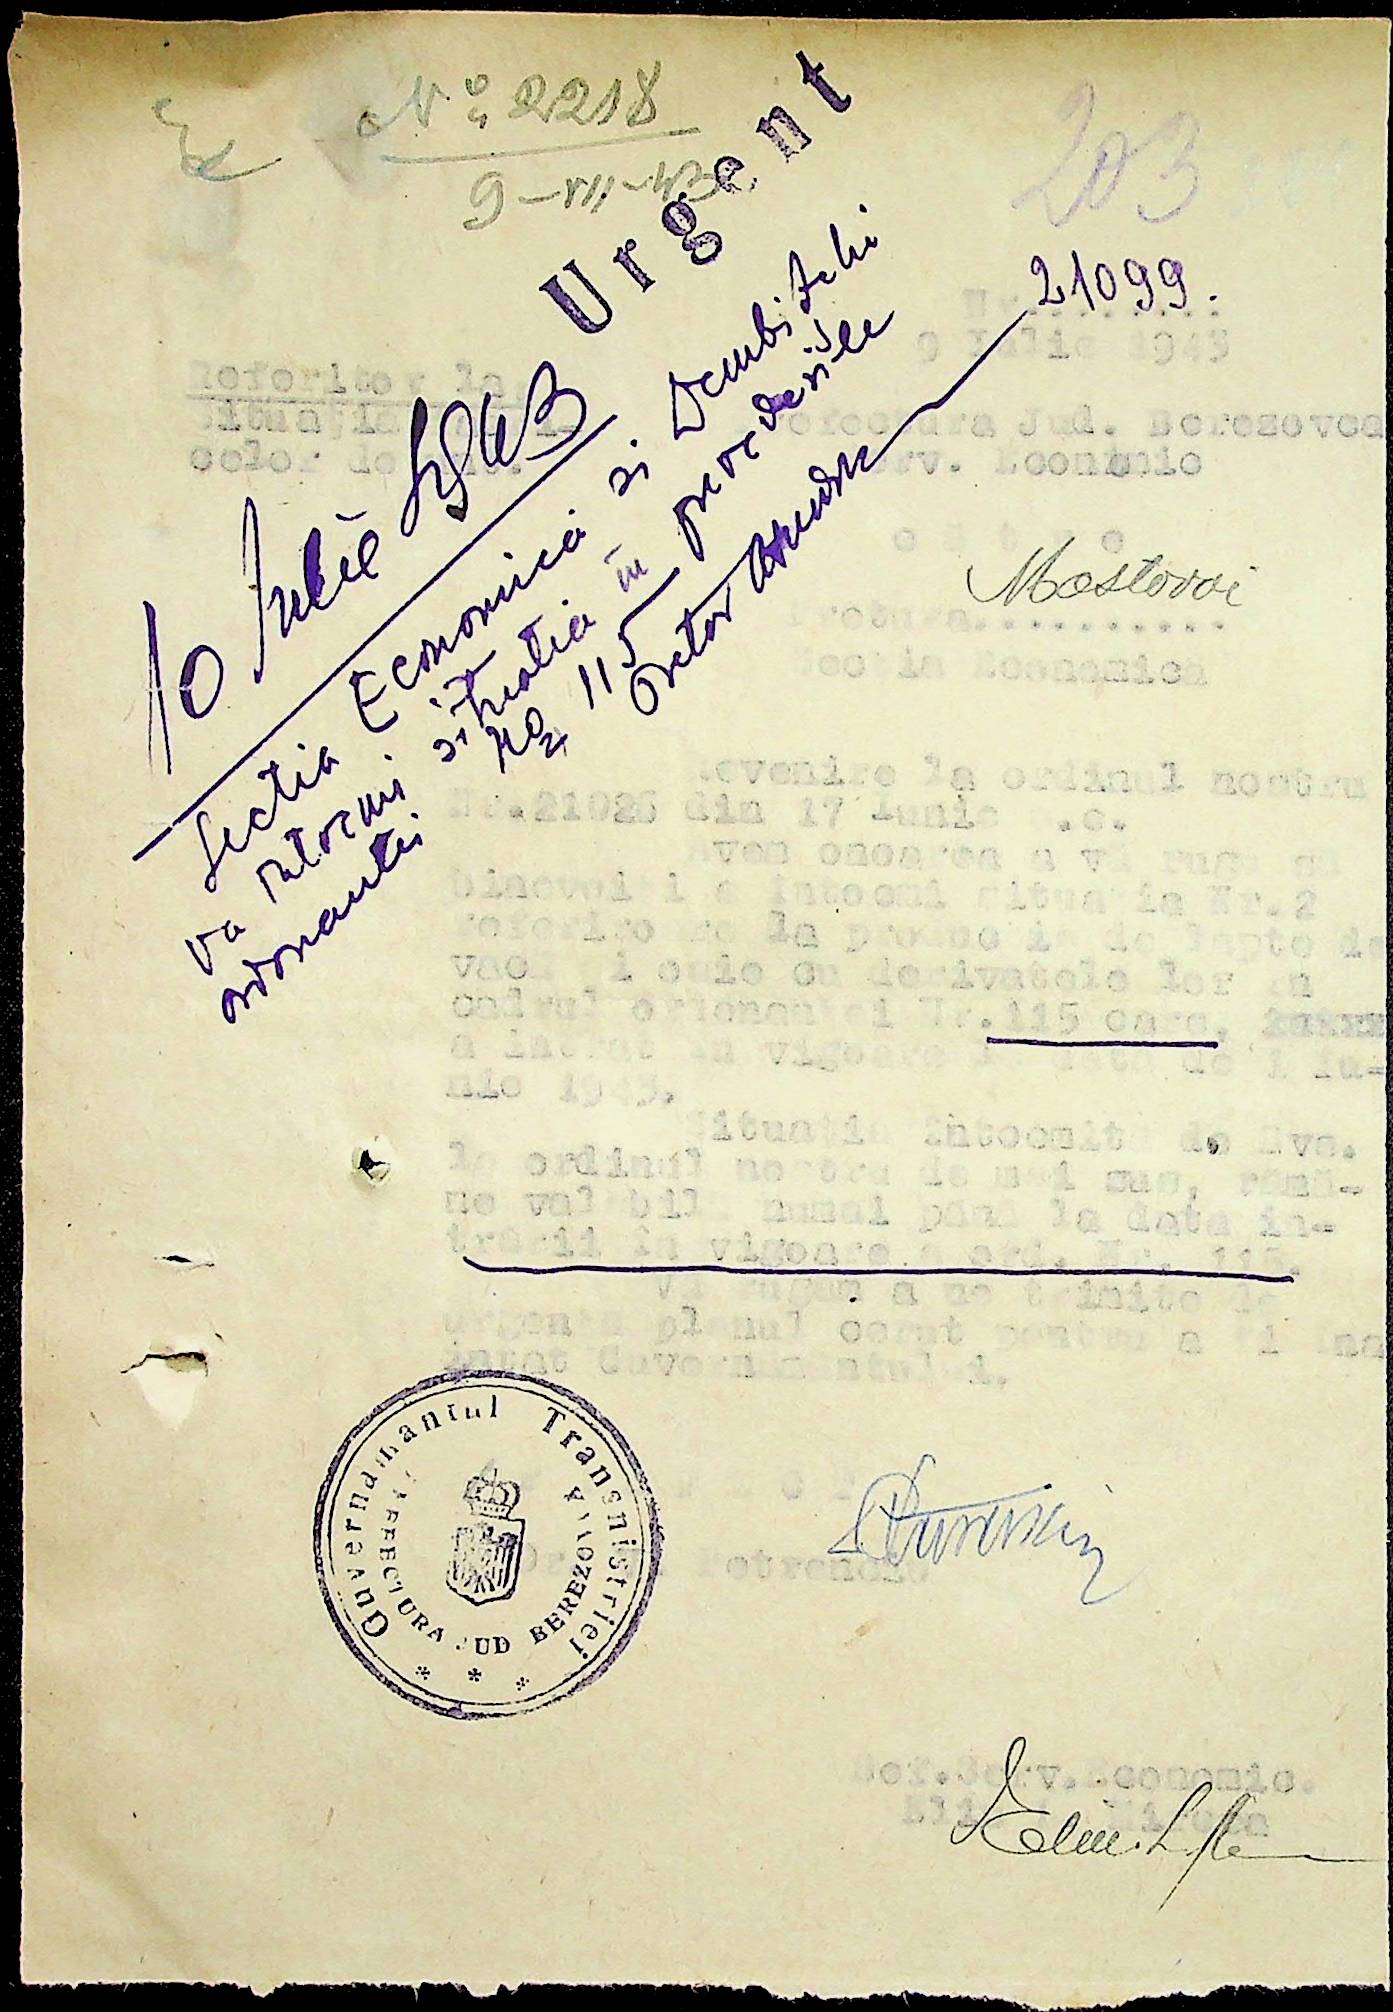 No. 2218
9-VII-43
203
Urgent
Nr. 21099.
9 Iulie 1943
Referitor la
situația
celor de
Prefectura Jud. Berezovca
Serv. Economic
catre
Mostovoi
Pretura...........
Sectia Economica
10 Iulie 1943
Sectia Economica si Dembitchi
va intocmi situatia in prevederile
ordonantei No 115
Pretor
Revenire la ordinul nostru
Nr.21026 din 17 Iunie a.c.
Avem onoarea a vă ruga să
binevoiți a întocmi situația Nr.2
referitoare la producția de lapte de
vacă și oaie cu derivatele lor în
cadrul ordonanței Nr.115 care,
a intrat în vigoare la data de 1 Iu-
nie 1943.
Situația întocmită de Dvs.
la ordinul nostru de mai sus, rămâ-
ne valabilă numai până la data in-
trării în vigoare a ord. Nr. 115.
Vă rugăm a ne trimite de
urgență planul cerut pentru a fi îna
intat Guvernamentului.
Guvernamantul Transnistriei
PREFECTURA JUD BEREZOVCA
* * *
PREFECT
Petrenciu
Sef.Serv.Economic.
Mircea